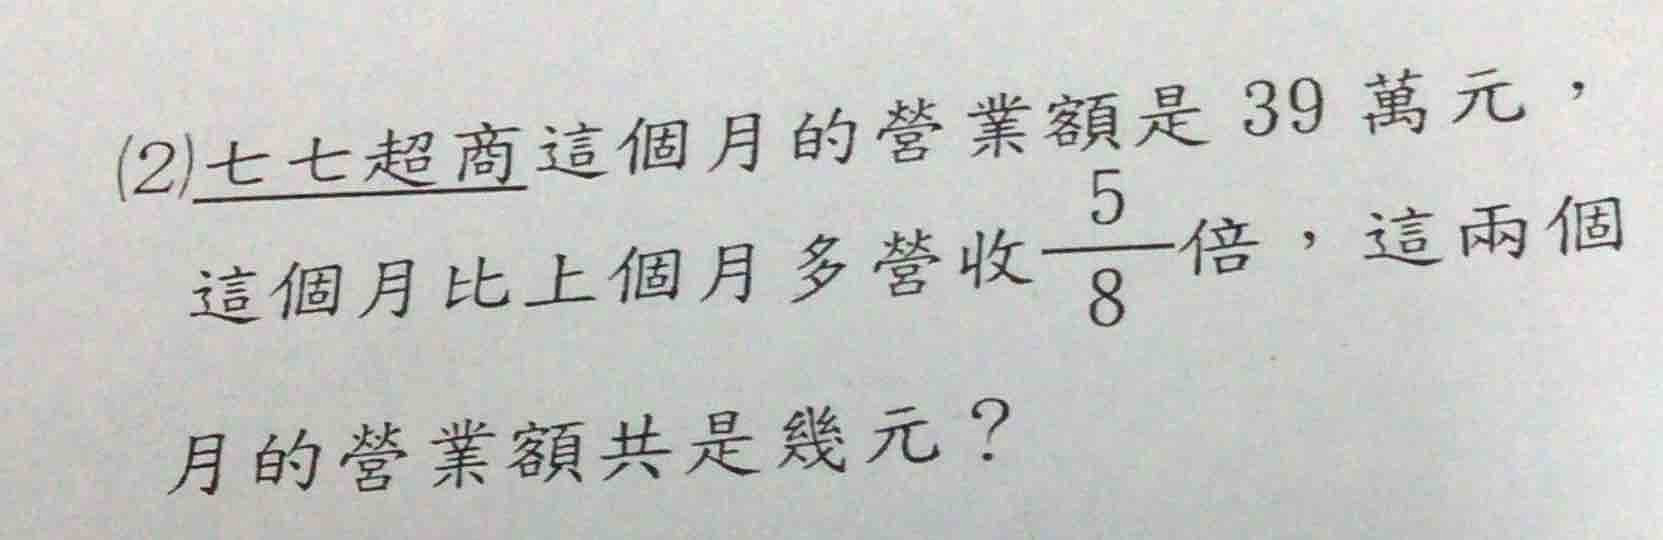 (2)七七超商這個月的營業額是 39 萬元，
這個月比上個月多營收5/8倍，這兩個
月的營業額共是幾元？